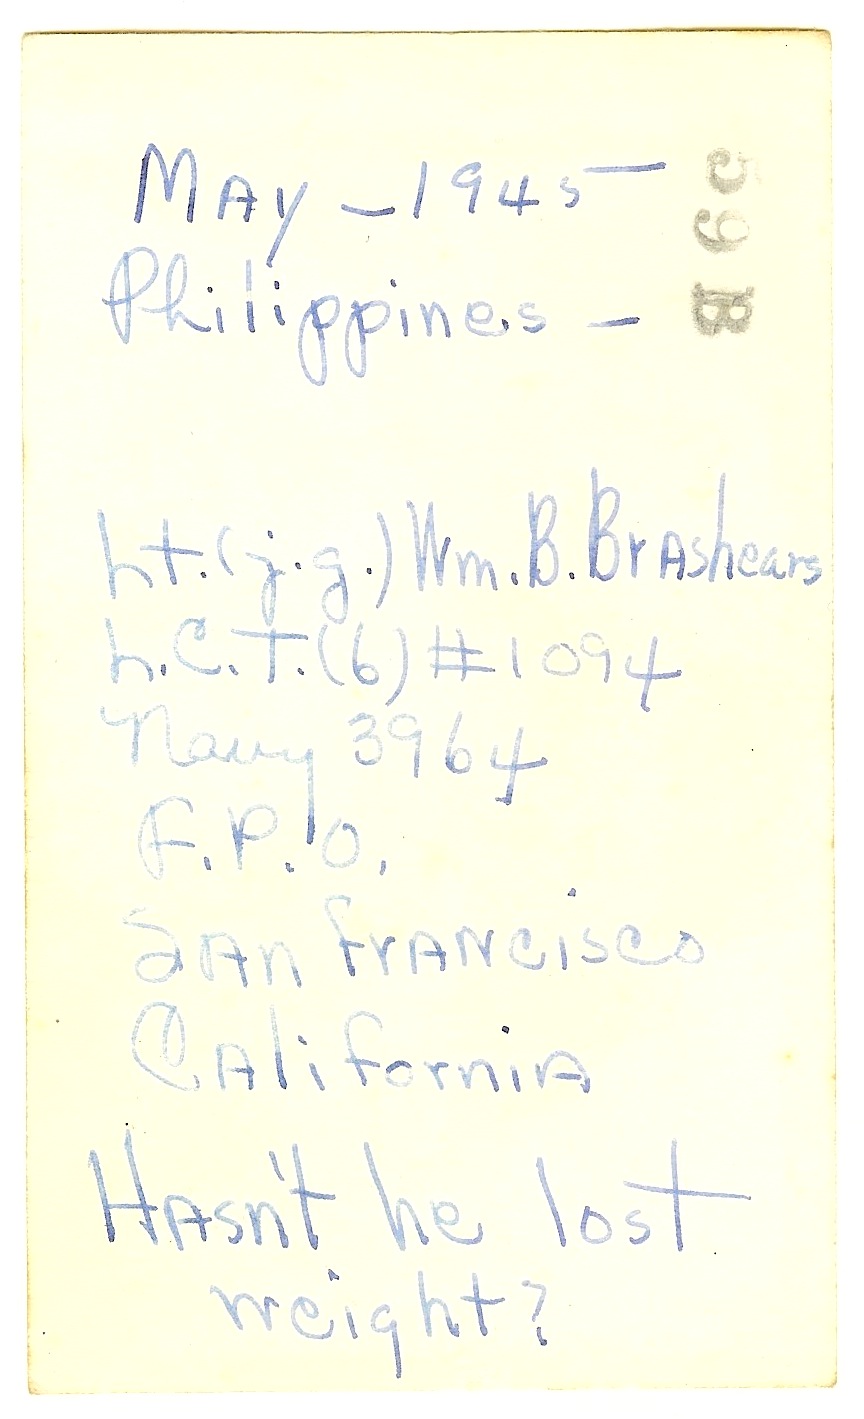 May - 1945
Philippines -
59B
Lt. (j.g.) Wm. B. Brashears
L.C.T. (6) #1094
Navy 3964
F.P.O.
San Francisco
California
Hasn't he lost
weight?